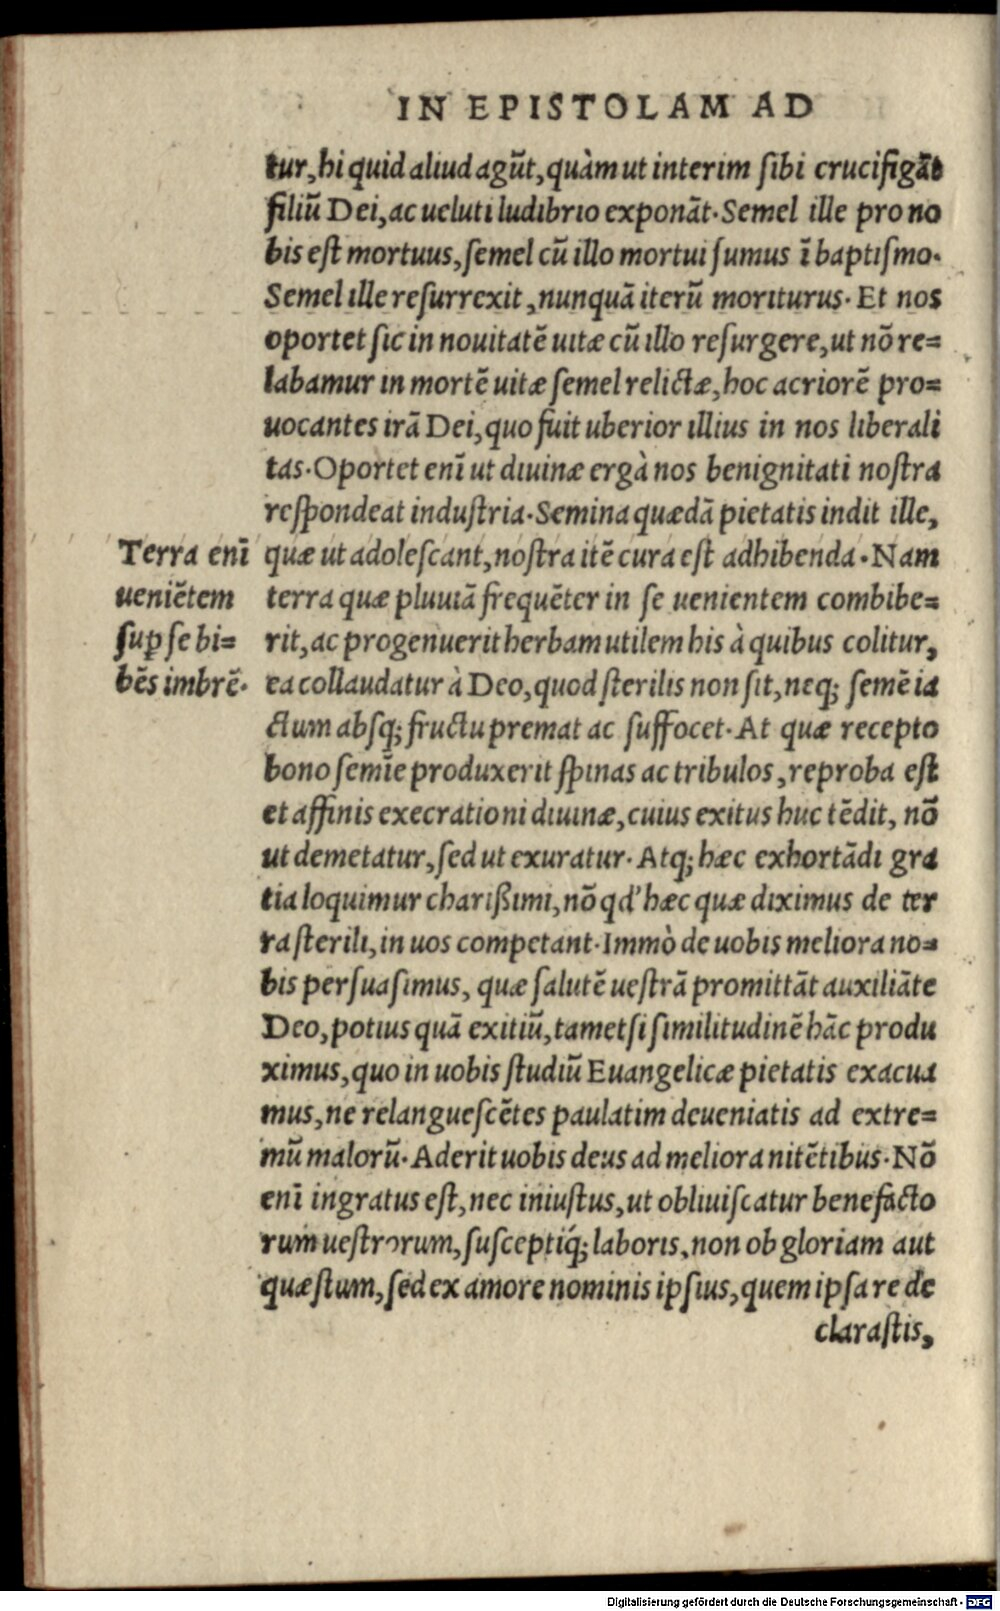 IN EPISTOLAM AD
tur, hi quid aliud agũt, quàm ut interim ſibi crucifigãt
filiũ Dei, ac ueluti ludibrio exponãt. Semel ille pro no
bis eſt mortuus, ſemel cũ illo mortui ſumus ĩ baptiſmo.
Semel ille reſurrexit, nunquã iterũ moriturus. Et nos
oportet ſic in nouitatẽ uitæ cũ illo reſurgere, ut nõ re=
labamur in mortẽ uitæ ſemel relictæ, hoc acriorẽ pro=
uocantes irã Dei, quo fuit uberior illius in nos liberali
tas. Oportet enĩ ut diuinæ ergà nos benignitati noſtra
reſpondeat induſtria. Semina quædã pietatis indit ille,
Terra enĩ
ueniẽtem
ſuꝑ ſe bi=
bẽs imbrẽ.
quæ ut adoleſcant, noſtra itẽ cura eſt adhibenda. Nam
terra quæ pluuiã frequẽter in ſe uenientem combibe=
rit, ac progenuerit herbam utilem his à quibus colitur,
ea collaudatur à Deo, quod ſterilis non ſit, neq; ſemẽ ia
ctum abſq; fructu premat ac ſuffocet. At quæ recepto
bono ſemĩe produxerit ſpinas ac tribulos, reproba eſt
et affinis execrationi diuinæ, cuius exitus huc tẽdit, nõ
ut demetatur, ſed ut exuratur. Atq; hæc exhortãdi gra
tia loquimur charißimi, nõ qd' hæc quæ diximus de ter
ra ſterili, in uos competant. Immò de uobis meliora no=
bis perſuaſimus, quæ ſalutẽ ueſtrã promittãt auxiliãte
Deo, potius quã exitiũ, tametſi ſimilitudinẽ hãc produ
ximus, quo in uobis ſtudiũ Euangelicæ pietatis exacua
mus, ne relangueſcẽtes paulatim deueniatis ad extre=
mũ malorũ. Aderit uobis deus ad meliora nitẽtibus. Nõ
enĩ ingratus eſt, nec iniuſtus, ut obliuiſcatur benefacto
rum ueſtrorum, ſuſceptiq́; laboris, non ob gloriam aut
quæſtum, ſed ex amore nominis ipſius, quem ipſa re de
claraſtis,
Digitalisierung gefördert durch die Deutsche Forschungsgemeinschaft - DFG